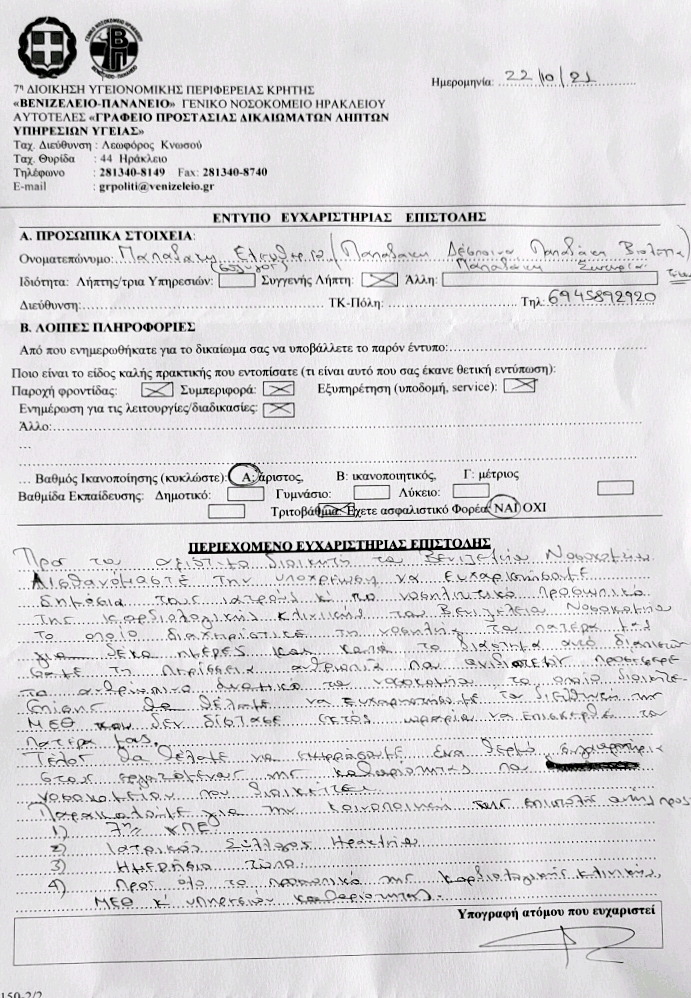 ΓΕΝΙΚΟ ΝΟΣΟΚΟΜΕΙΟ ΗΡΑΚΛΕΙΟΥ
ΒΕΝΙΖΕΛΕΙΟ - ΠΑΝΑΝΕΙΟ
7η ΔΙΟΙΚΗΣΗ ΥΓΕΙΟΝΟΜΙΚΗΣ ΠΕΡΙΦΕΡΕΙΑΣ ΚΡΗΤΗΣ
Ημερομηνία: 22/10/21
«ΒΕΝΙΖΕΛΕΙΟ-ΠΑΝΑΝΕΙΟ» ΓΕΝΙΚΟ ΝΟΣΟΚΟΜΕΙΟ ΗΡΑΚΛΕΙΟΥ
ΑΥΤΟΤΕΛΕΣ «ΓΡΑΦΕΙΟ ΠΡΟΣΤΑΣΙΑΣ ΔΙΚΑΙΩΜΑΤΩΝ ΛΗΠΤΩΝ
ΥΠΗΡΕΣΙΩΝ ΥΓΕΙΑΣ»
Ταχ. Διεύθυνση : Λεωφόρος Κνωσού
Ταχ. Θυρίδα : 44 Ηράκλειο
Τηλέφωνο : 281340-8149 Fax: 281340-8740
E-mail : grpoliti@venizeleio.gr
ΕΝΤΥΠΟ ΕΥΧΑΡΙΣΤΗΡΙΑΣ ΕΠΙΣΤΟΛΗΣ
Α. ΠΡΟΣΩΠΙΚΑ ΣΤΟΙΧΕΙΑ:
Ονοματεπώνυμο: Παπαδάκη Ελευθερία (Παπαδάκη Δέσποινα Παπαδάκη Βιολέτα)
(σύζυγος) Παπαδάκη
Ιδιότητα: Λήπτης/τρια Υπηρεσιών: Συγγενής Λήπτη: Άλλη:
Διεύθυνση: ΤΚ-Πόλη: Τηλ: 6945892920
Β. ΛΟΙΠΕΣ ΠΛΗΡΟΦΟΡΙΕΣ
Από που ενημερωθήκατε για το δικαίωμα σας να υποβάλλετε το παρόν έντυπο:
Ποιο είναι το είδος καλής πρακτικής που εντοπίσατε (τι είναι αυτό που σας έκανε θετική εντύπωση):
Παροχή φροντίδας: Συμπεριφορά: Εξυπηρέτηση (υποδομή, service):
Ενημέρωση για τις λειτουργίες/διαδικασίες:
Άλλο:
...
... Βαθμός Ικανοποίησης (κυκλώστε): Α: άριστος, Β: ικανοποιητικός, Γ: μέτριος
Βαθμίδα Εκπαίδευσης: Δημοτικό: Γυμνάσιο: Λύκειο:
Τριτοβάθμια: Έχετε ασφαλιστικό Φορέα: ΝΑΙ ΟΧΙ
ΠΕΡΙΕΧΟΜΕΝΟ ΕΥΧΑΡΙΣΤΗΡΙΑΣ ΕΠΙΣΤΟΛΗΣ
Προς το αξιότιμο διοικητή του Βενιζελείου Νοσοκομείου
Αισθανόμαστε την υποχρέωση να ευχαριστήσουμε
δημόσια τους ιατρούς κ' το νοσηλευτικό προσωπικό
της καρδιολογικής κλινικής του Βενιζελείου Νοσοκομείου
το οποίο διαχειρίστικε τη νοσηλεία του πατέρα μας
για δέκα ημέρες και κατά το διάστημα αυτό διαπιστώ-
σαμε τη περίσσεια ανθρωπιά που προσέφερε
το ανθρώπινο δυναμικό του νοσοκομείου το οποίο διοικείτε.
Επίσης θα θέλαμε να ευχαριστήσουμε το διευθυντή της
ΜΕΘ που δεν δίστασε εκτός ωραρίου να επισκεφθεί τον
πατέρα μας.
Τέλος θα θέλαμε να εκφράσουμε ένα θερμό ευχαριστήριο
στους εργαζομένους της καθαριότητας του
νοσοκομείου που διοικείτε.
Παρακαλούμε για την κοινοποίηση της επιστολής αυτής προς:
1) 7η ΥΠΕ
2) Ιατρικός Σύλλογος Ηρακλείου
3) Ημερήσιο τύπο
4) Προς όλο το προσωπικό της καρδιολογικής κλινικής,
ΜΕΘ κ' υπηρεσιών καθαριότητας.
Υπογραφή ατόμου που ευχαριστεί
150-2/2